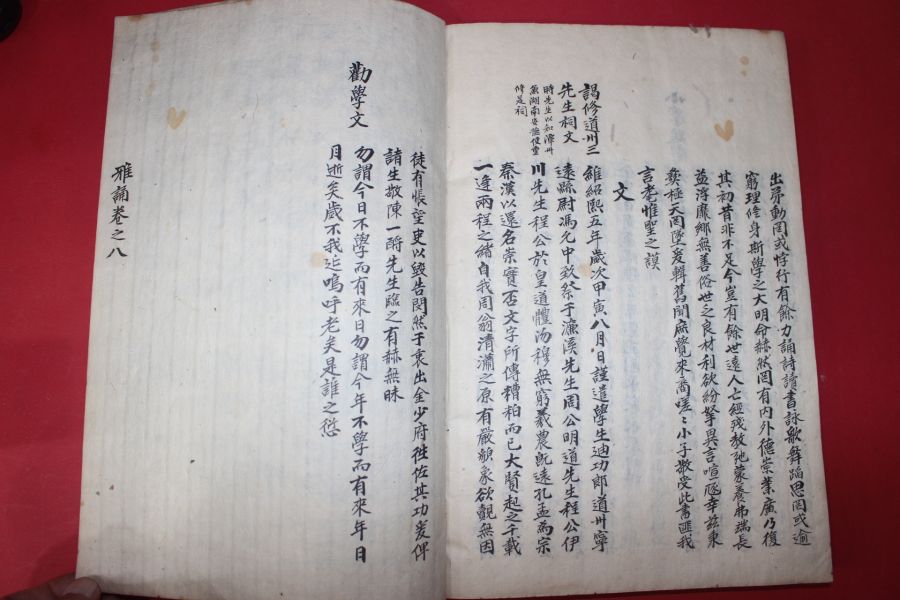 出弟動罔或悖行有餘力誦詩讀書詠歌舞蹈思罔或逾
窮理修身斯學之大明命赫然罔有內外德崇業廣乃復
其初昔非不足今豈有餘世遠人亡經殘教弛蒙養弗端長
益浮靡鄉無善俗世乏良材利欲紛拏異言喧豗幸玆秉
彝極天罔墜爰輯舊聞庶覺來裔嗟〻小子敬受此書匪我
言耄惟聖之謨
文
謁修道州三
先生祠文
時先生以知潭州
兼湖南安撫使重
修是祠
維紹熙五年歲次甲寅八月日謹遣學生迪功郎道州寧
遠縣尉馮允中致祭于濂溪先生周公明道先生程公伊
川先生程公於皇道體沕穆無窮羲農旣遠孔孟爲宗
秦漢以還名崇實否文字所傳糟粕而已大賢起之千載
一逢兩程之緖自我周翁淸瀟之原有嚴貌象欲覿無因
徒有悵望吏以毁告閔然于衷出金少府徃佐其功爰俾
諸生敬陳一酹先生臨之有赫無昧
勸學文
勿謂今日不學而有來日勿謂今年不學而有來年日
月逝矣歲不我延嗚呼老矣是誰之愆
雅誦卷之八